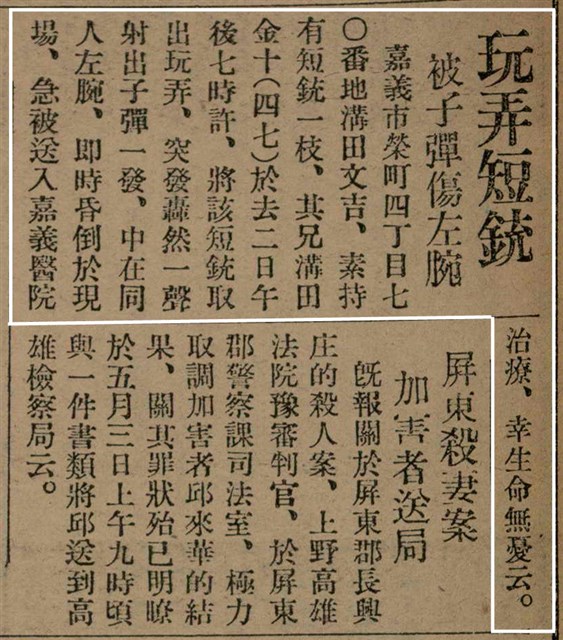 玩弄短銃
被子彈傷左腕
嘉義市榮町四丁目七
〇番地溝田文吉、素持
有短銃一枝、其兄溝田
金十(四七)於去二日午
後七時許、將該短銃取
出玩弄、突發轟然一聲
射出子彈一發、中在同
人左腕、即時昏倒於現
場、急被送入嘉義醫院
治療、幸生命無憂云。
屏東殺妻案
加害者送局
既報關於屏東郡長興
庄的殺人案、上野高雄
法院豫審判官、於屏東
郡警察課司法室、極力
取調加害者邱來華的結
果、關其罪狀殆已明瞭
於五月三日上午九時頃
與一件書類將邱送到高
雄檢察局云。